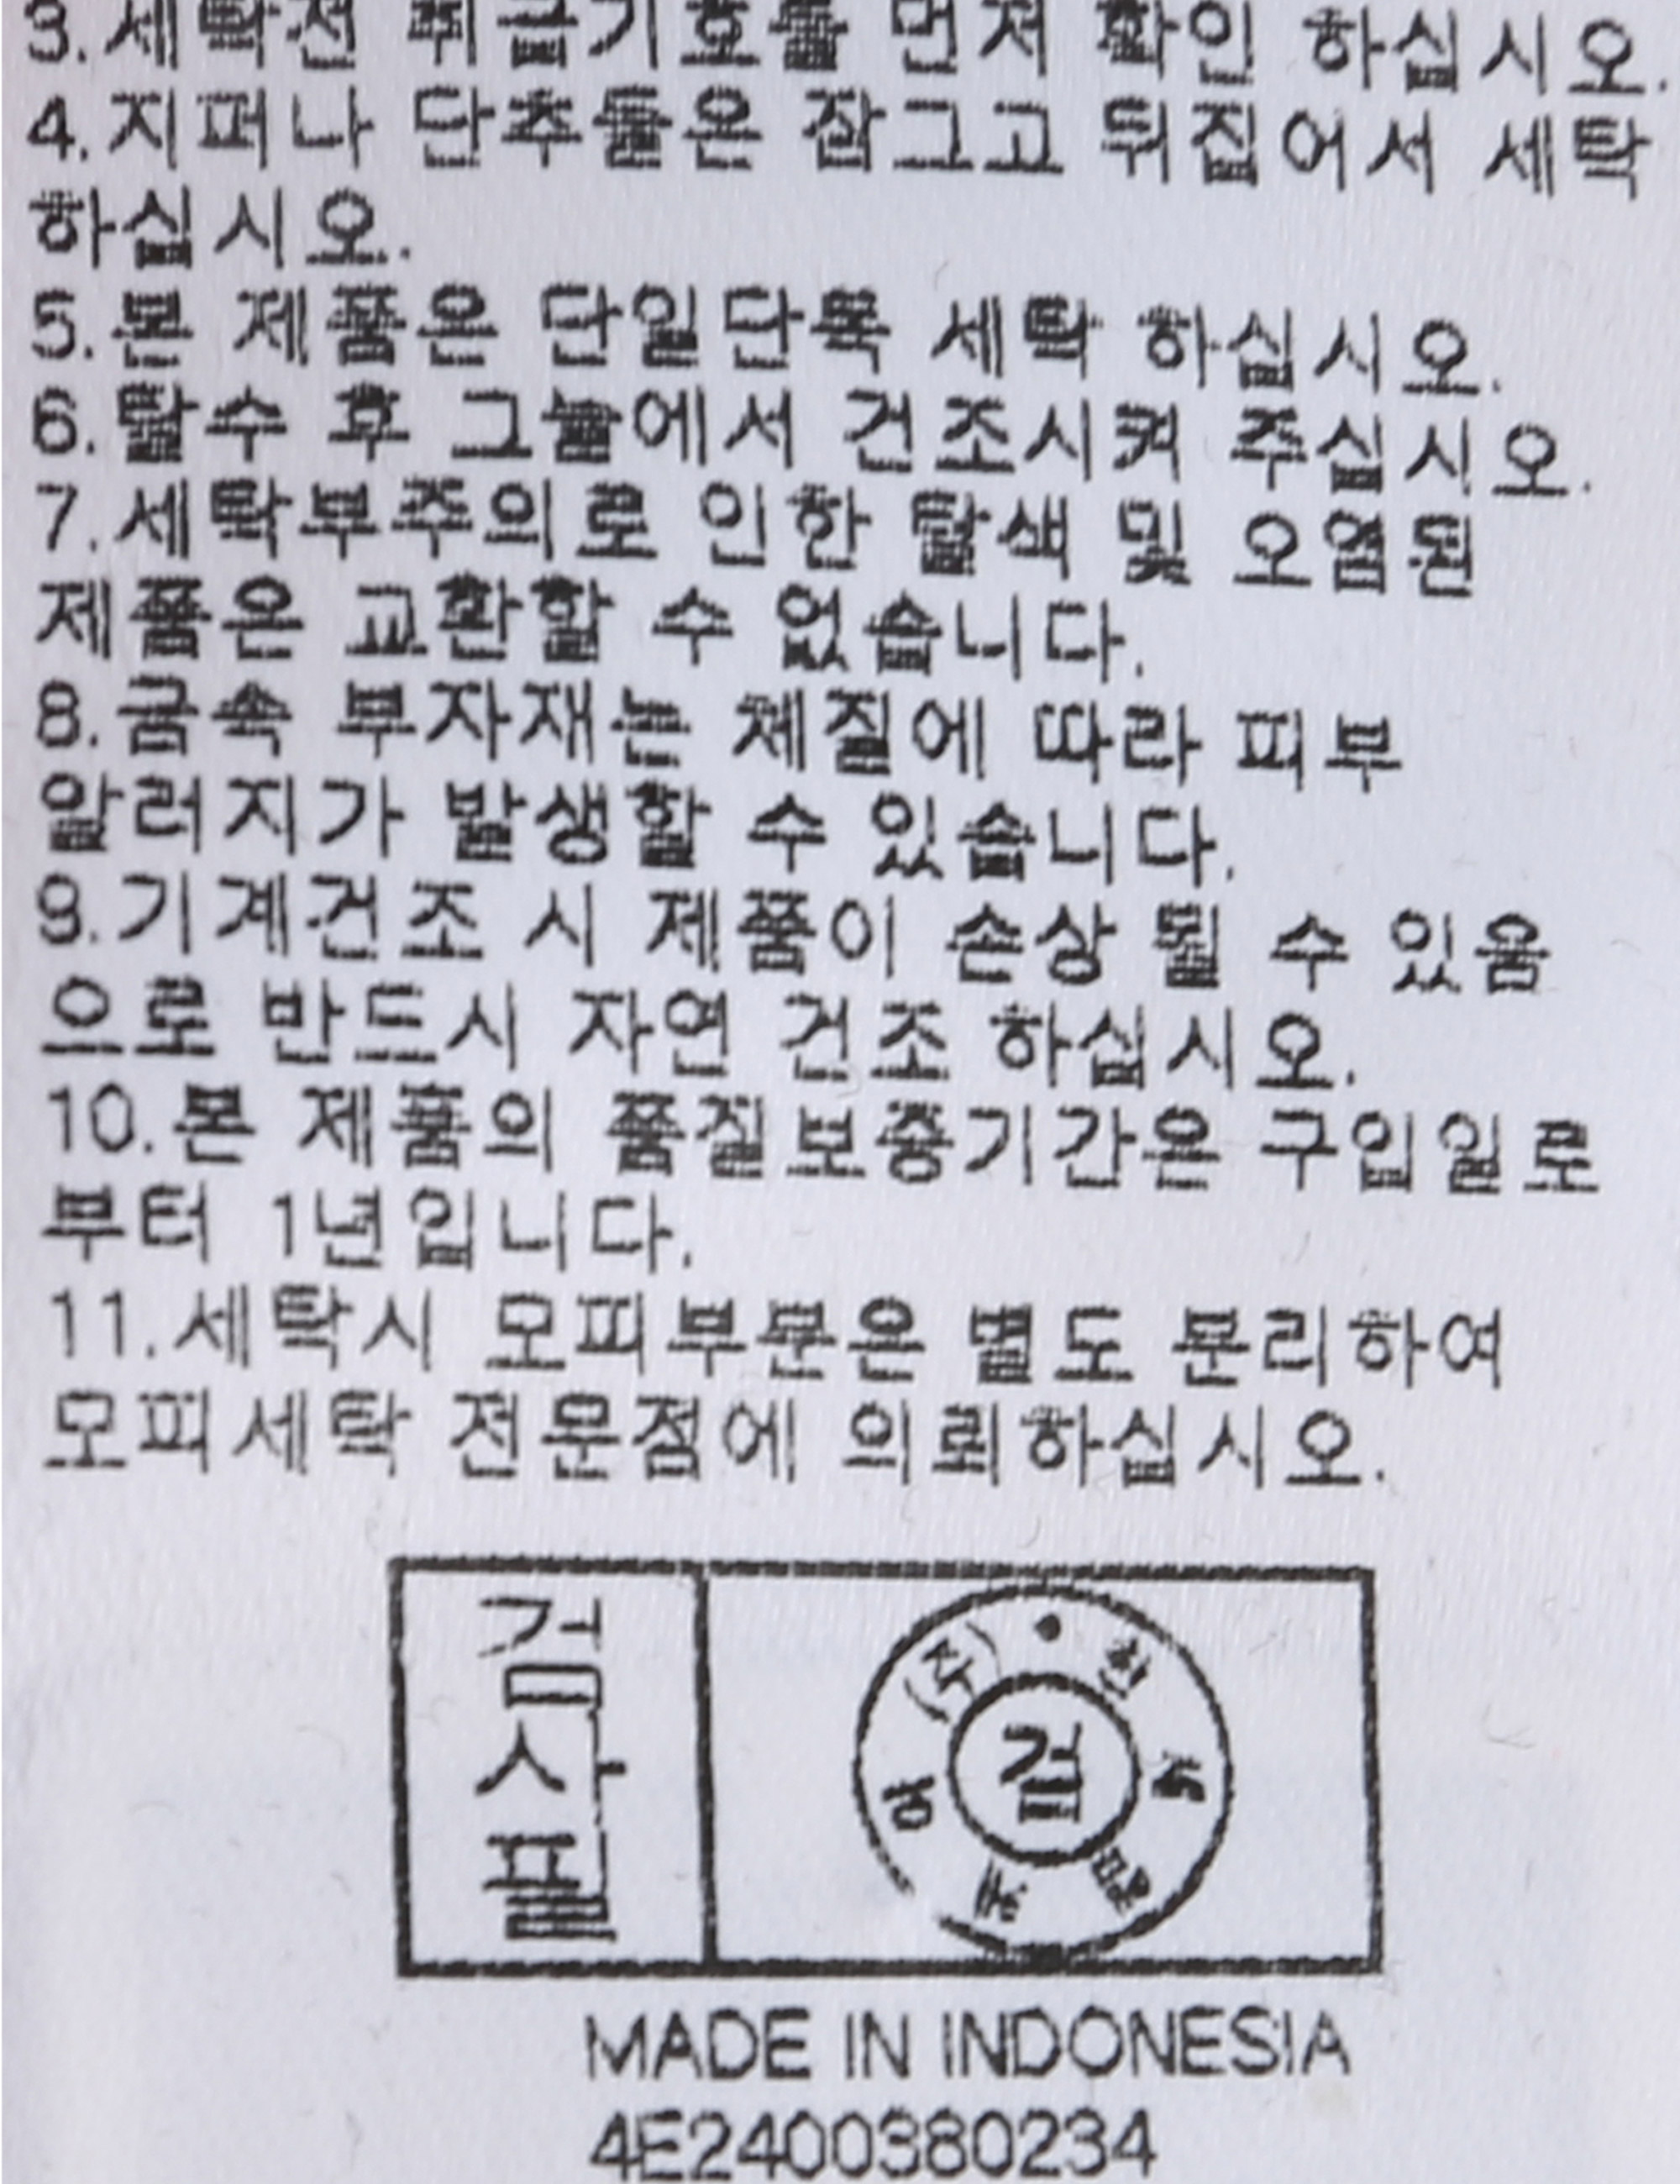 3.세탁전 취급기호를 먼저 확인 하십시오.
4.지퍼나 단추들은 잠그고 뒤집어서 세탁
하십시오.
5.본 제품은 단일단독 세탁 하십시오.
6.탈수 후 그늘에서 건조시켜 주십시오.
7.세탁부주의로 인한 탈색 및 오염된
제품은 교환할 수 없습니다.
8.금속 부자재는 체질에 따라 피부
알러지가 발생할 수 있습니다.
9.기계건조 시 제품이 손상 될 수 있음
으로 반드시 자연 건조 하십시오.
10.본 제품의 품질보증기간은 구입일로
부터 1년입니다.
11.세탁시 모피부분은 별도 분리하여
모피세탁 전문점에 의뢰하십시오.
검사필
(주)
검
MADE IN INDONESIA
4E2400380234